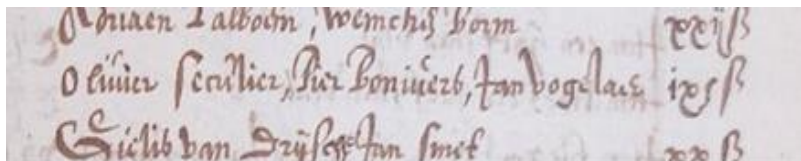 Adriaen Talboem, Wemchis borm xxij ß
Olivier seculier, Pier Boniverb, Jan vogelaer ix ß
Gielis van Jan smet xx ß